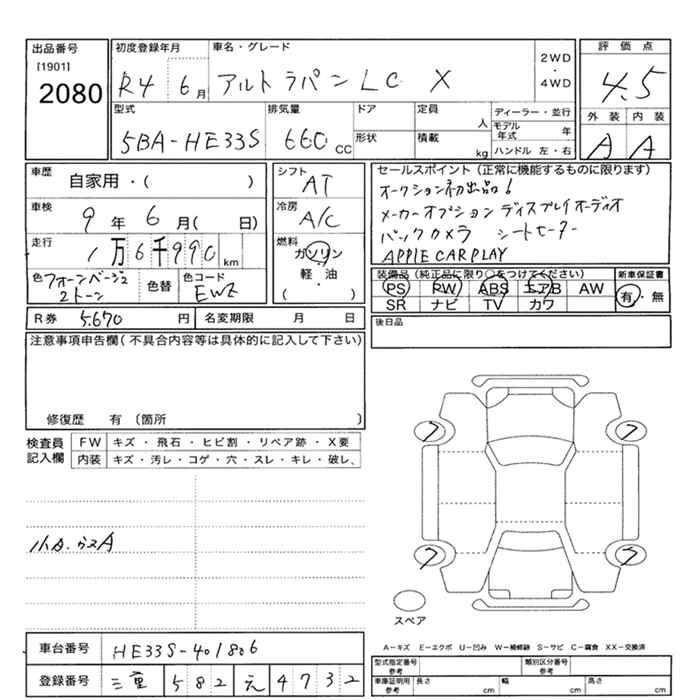 出品番号
[1901]
2080
初度登録年月
R4 6月
車名・グレード
アルトラパンLC X
2WD
・
4WD
評価点
4.5
型式
5BA-HE33S
排気量
660 CC
ドア
形状
定員
人
積載
kg
ディーラー・並行
モデル年式 年
ハンドル 左・右
外装 内装
A A
車歴
自家用・( )
車検
9年 6月( 日)
走行
1万6千990 km
色
2トーン
色替
色コード
EWE
シフト
AT
冷房
A/C
燃料
ガソリン
・
軽・油
( )
セールスポイント(正常に機能するものに限ります)
オークション初出品!
メーカーオプション ディスプレイオーディオ
バックカメラ シートヒーター
APPLE CARPLAY
装備品(純正品に限り○をつけてください)
PS PW ABS エアB AW
SR ナビ TV カワ
新車保証書
有・無
R券 5.670 円
名変期限 月 日
後日品
注意事項申告欄(不具合内容等は具体的に記入して下さい)
修復歴 有 (箇所 )
検査員
記入欄
FW キズ・飛石・ヒビ割・リペア跡・X要
内装 キズ・汚レ・コゲ・穴・スレ・キレ・破レ、
7 7
7 7
スペア
A-キズ E-エクボ U-凹み W-補修跡 S-サビ C-腐食 XX-交換済
車台番号 HE33S-401806
登録番号 三重 582 え 4732
型式指定番号
類別区分番号
参考
車庫証明用
参考
長さ cm 幅 cm 高さ cm